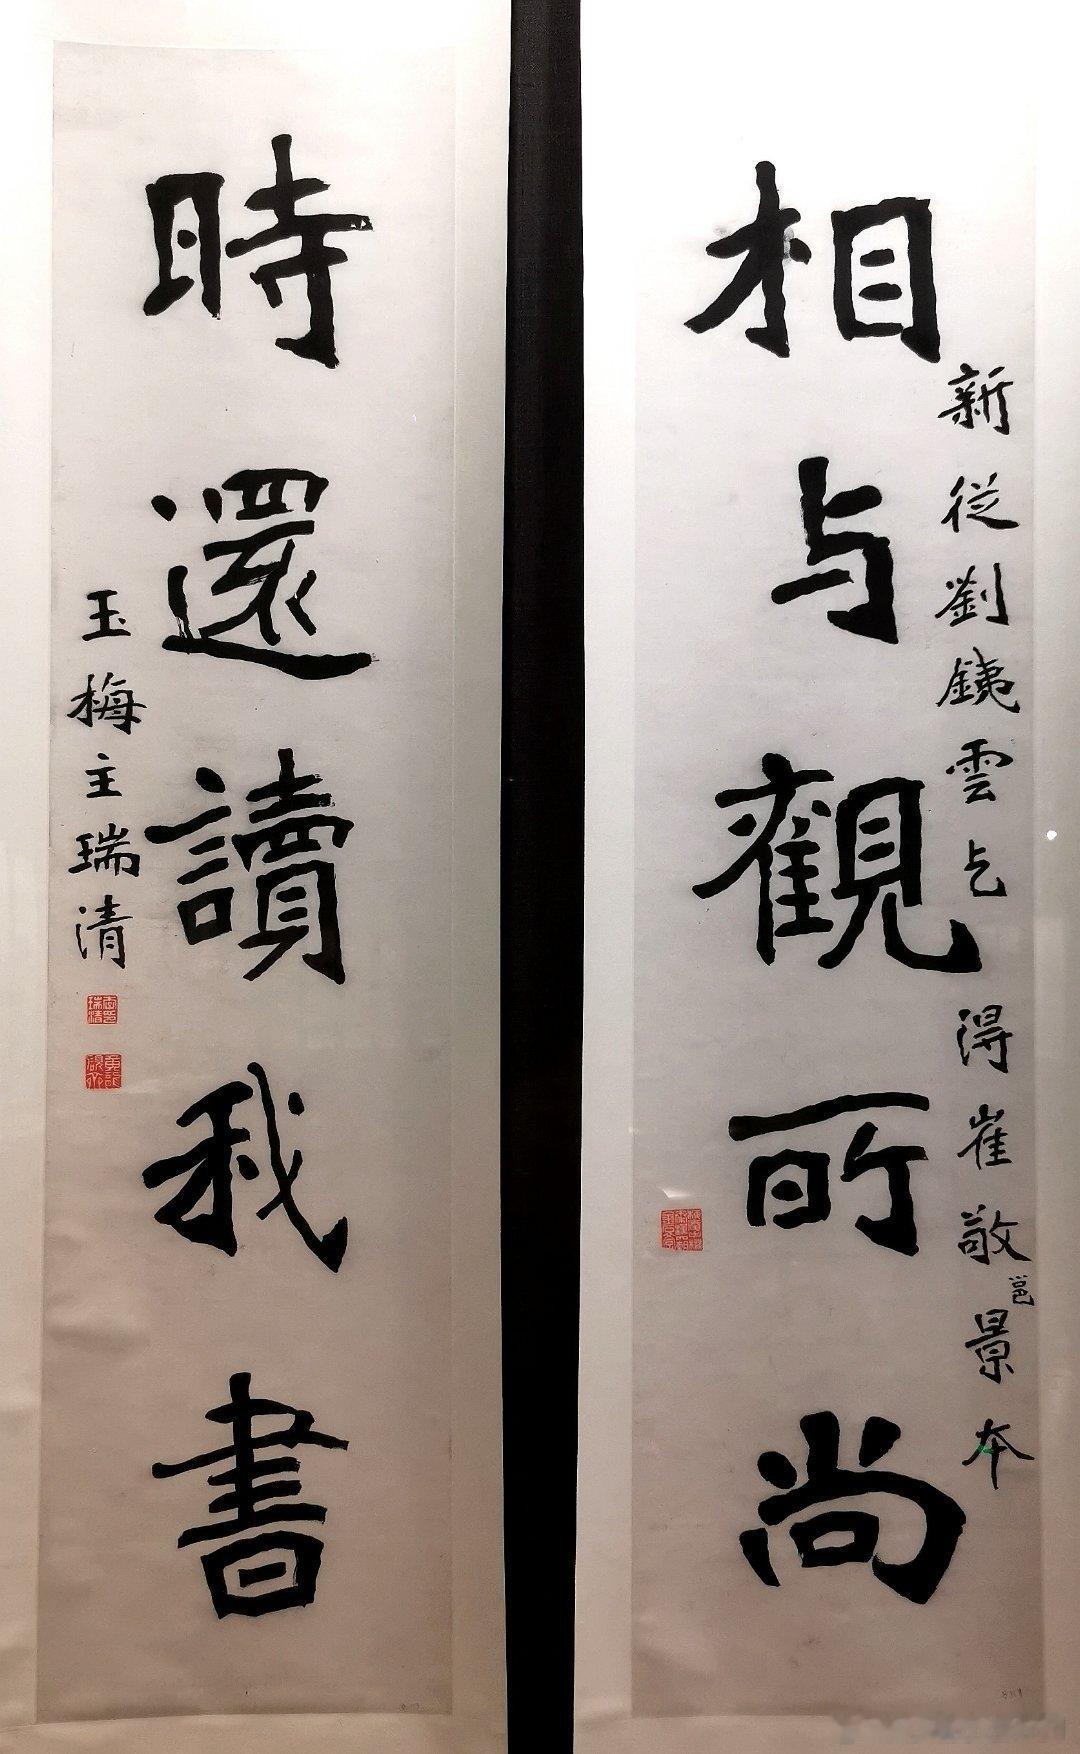 相与觀所尚
新從劉鐵雲乞得崔敬邕景本
時還讀我書
玉梅主瑞清